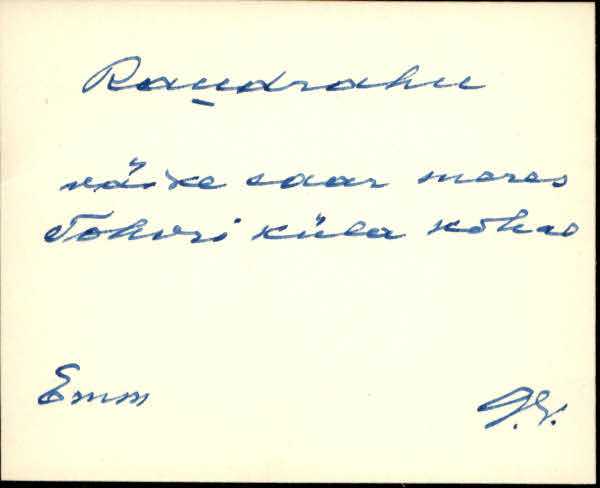 Raudrahu
väike saar meres
Tohvri küla kohas
Emm